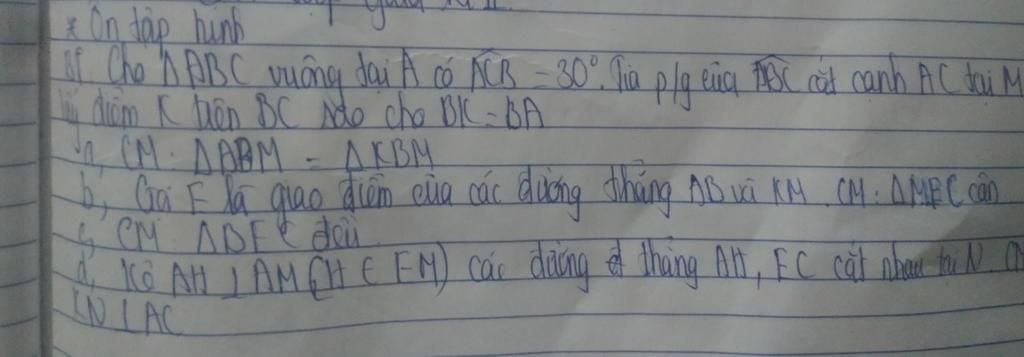 * Ôn tập hình
Cho ΔABC vuông tại A có ACB = 30°. Tia p/g của ABC cắt cạnh AC tại M
lấy điểm K trên BC sao cho BK = BA
a, CM: ΔABM = ΔKBM
b, Gọi E là giao điểm của các đường thẳng AB và KM. CM: ΔMEC cân
c, CM ΔBEC đều
d, Kẻ AH ⊥ AM (H ∈ EM) các đường thẳng AH, EC cắt nhau tại N.
KN ⊥ AC